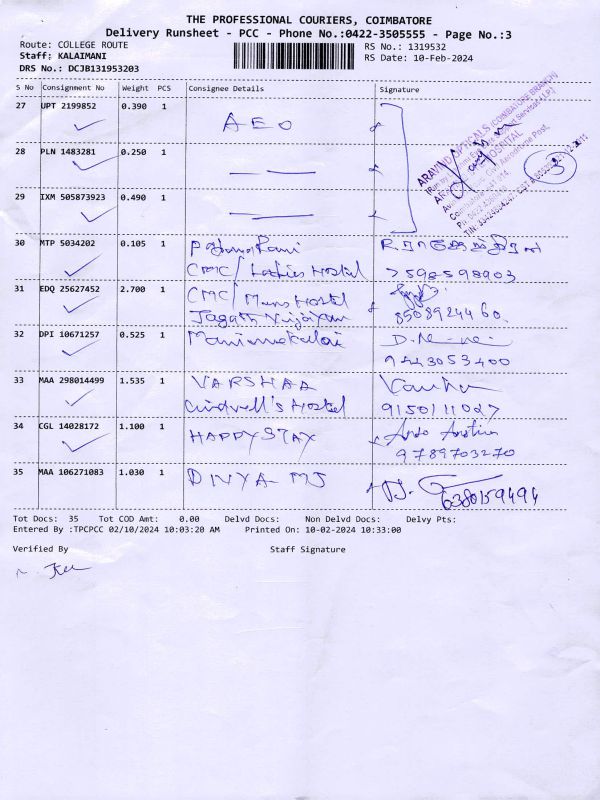 THE PROFESSIONAL COURIERS, COIMBATORE
Delivery Runsheet - PCC - Phone No.:0422-3505555 - Page No.:3
Route: COLLEGE ROUTE
Staff: KALAIMANI
DRS No.: DCJB131953203
RS No.: 1319532
RS Date: 10-Feb-2024
S No Consignment No Weight PCS Consignee Details Signature
27 UPT 2199852 0.390 1 AEO
28 PLN 1483281 0.250 1
29 IXM 505873923 0.490 1
ARAVIND OPTICALS
HOSPITAL
3
30 MTP 5034202 0.105 1
CMC/ Ladies Hostel 7598598903
31 EDQ 25627452 2.700 1 CMC/ Mens Hostel
Jagath Vijayan 8508924460
32 DPI 10671257 0.525 1 Manimekalai
9443053400
33 MAA 298014499 1.535 1 VARSHAA
Hostel 9150111027
34 CGL 14028172 1.100 1 HAPPYSTAY
9789703270
35 MAA 106271083 1.030 1 DIVYA MJ
6380159494
Tot Docs: 35 Tot COD Amt: 0.00 Delvd Docs: Non Delvd Docs: Delvy Pts:
Entered By :TPCPCC 02/10/2024 10:03:20 AM Printed On: 10-02-2024 10:33:00
Verified By Staff Signature